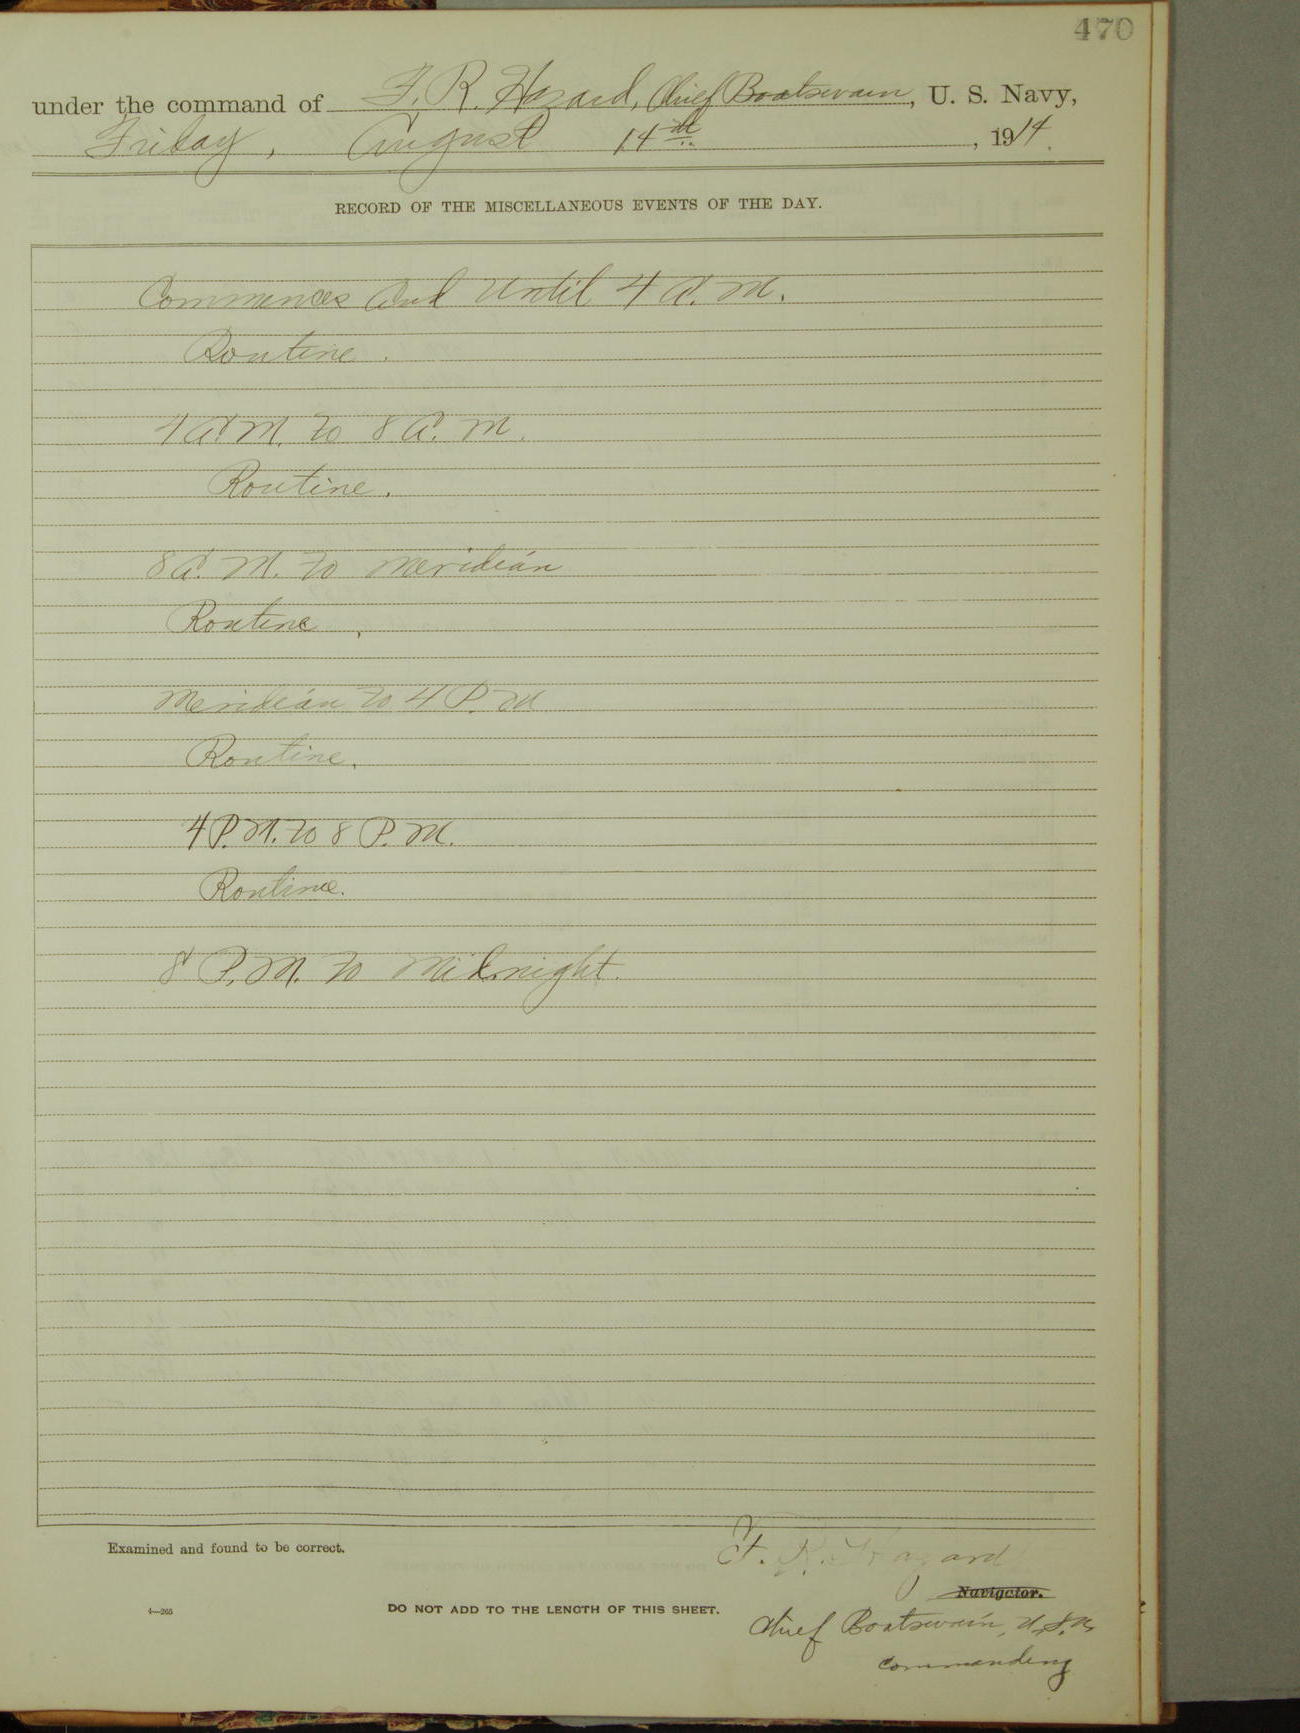 470
under the command of F. R. Hazard, Chief Boatswain, U. S. Navy,
Friday, August 14th, 1914.
RECORD OF THE MISCELLANEOUS EVENTS OF THE DAY.
Commences and Until 4 A.M.
Routine.
4 A.M. to 8 A.M.
Routine.
8 A.M. to Meridian
Routine.
Meridian to 4 P.M
Routine.
4 P.M. to 8 P.M.
Routine.
8 P.M. to Midnight.
Examined and found to be correct.
F. R. Hazard
Navigator.
4—265
DO NOT ADD TO THE LENGTH OF THIS SHEET.
Chief Boatswain, U.S.N,
Commanding